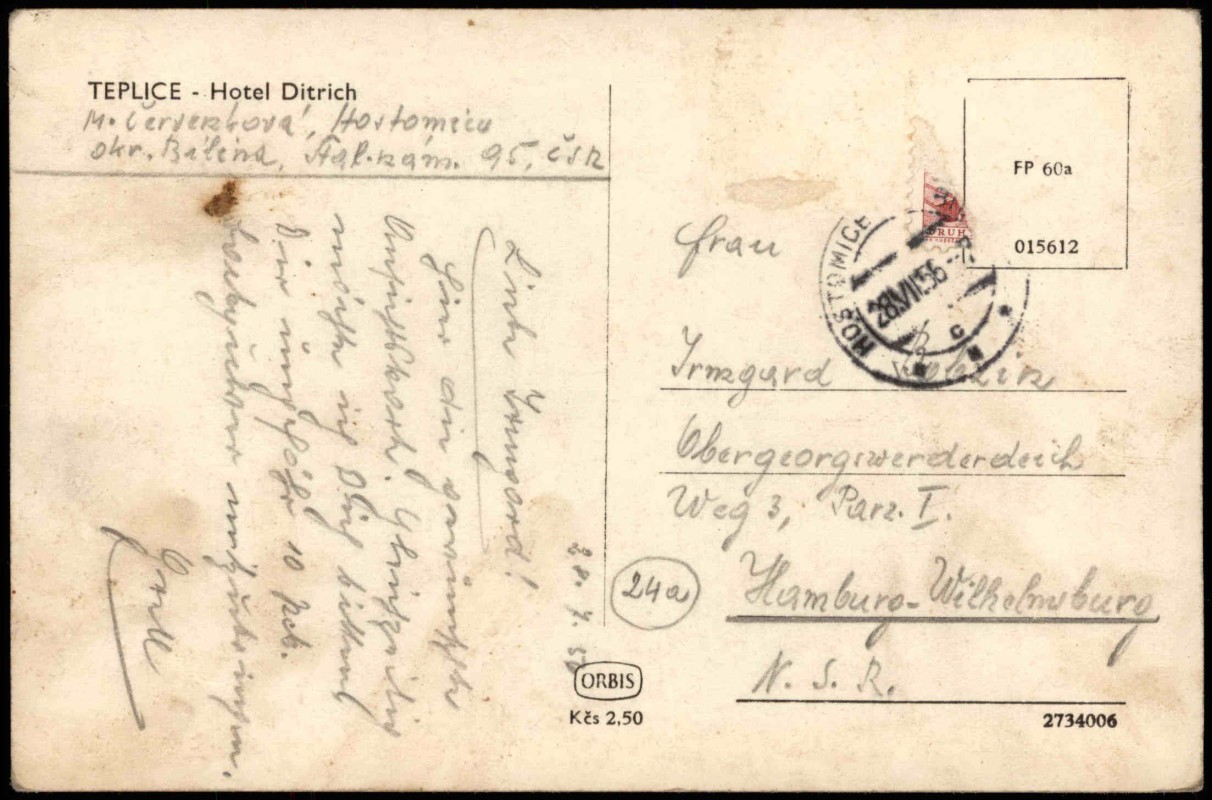 TEPLICE - Hotel Ditrich
M. Červenková, Hostomice
okr. Bílina, 95, ČSR
28. 7. 56
Liebe Irmgard!
Hier die gewünschte
Ansichtskarte. Gleichzeitig
möchte ich Dich bitten
Dir ungefähr 10 Mtr.
mitzubringen.
FP 60a
015612
DRUH
HOSTOMICE
28.VII.56
c
Frau
Irmgard
Obergeorgswerderdeich
Weg 3, Parz. I.
24a
Hamburg-Wilhelmsburg
N. S. R.
ORBIS
Kčs 2,50
2734006